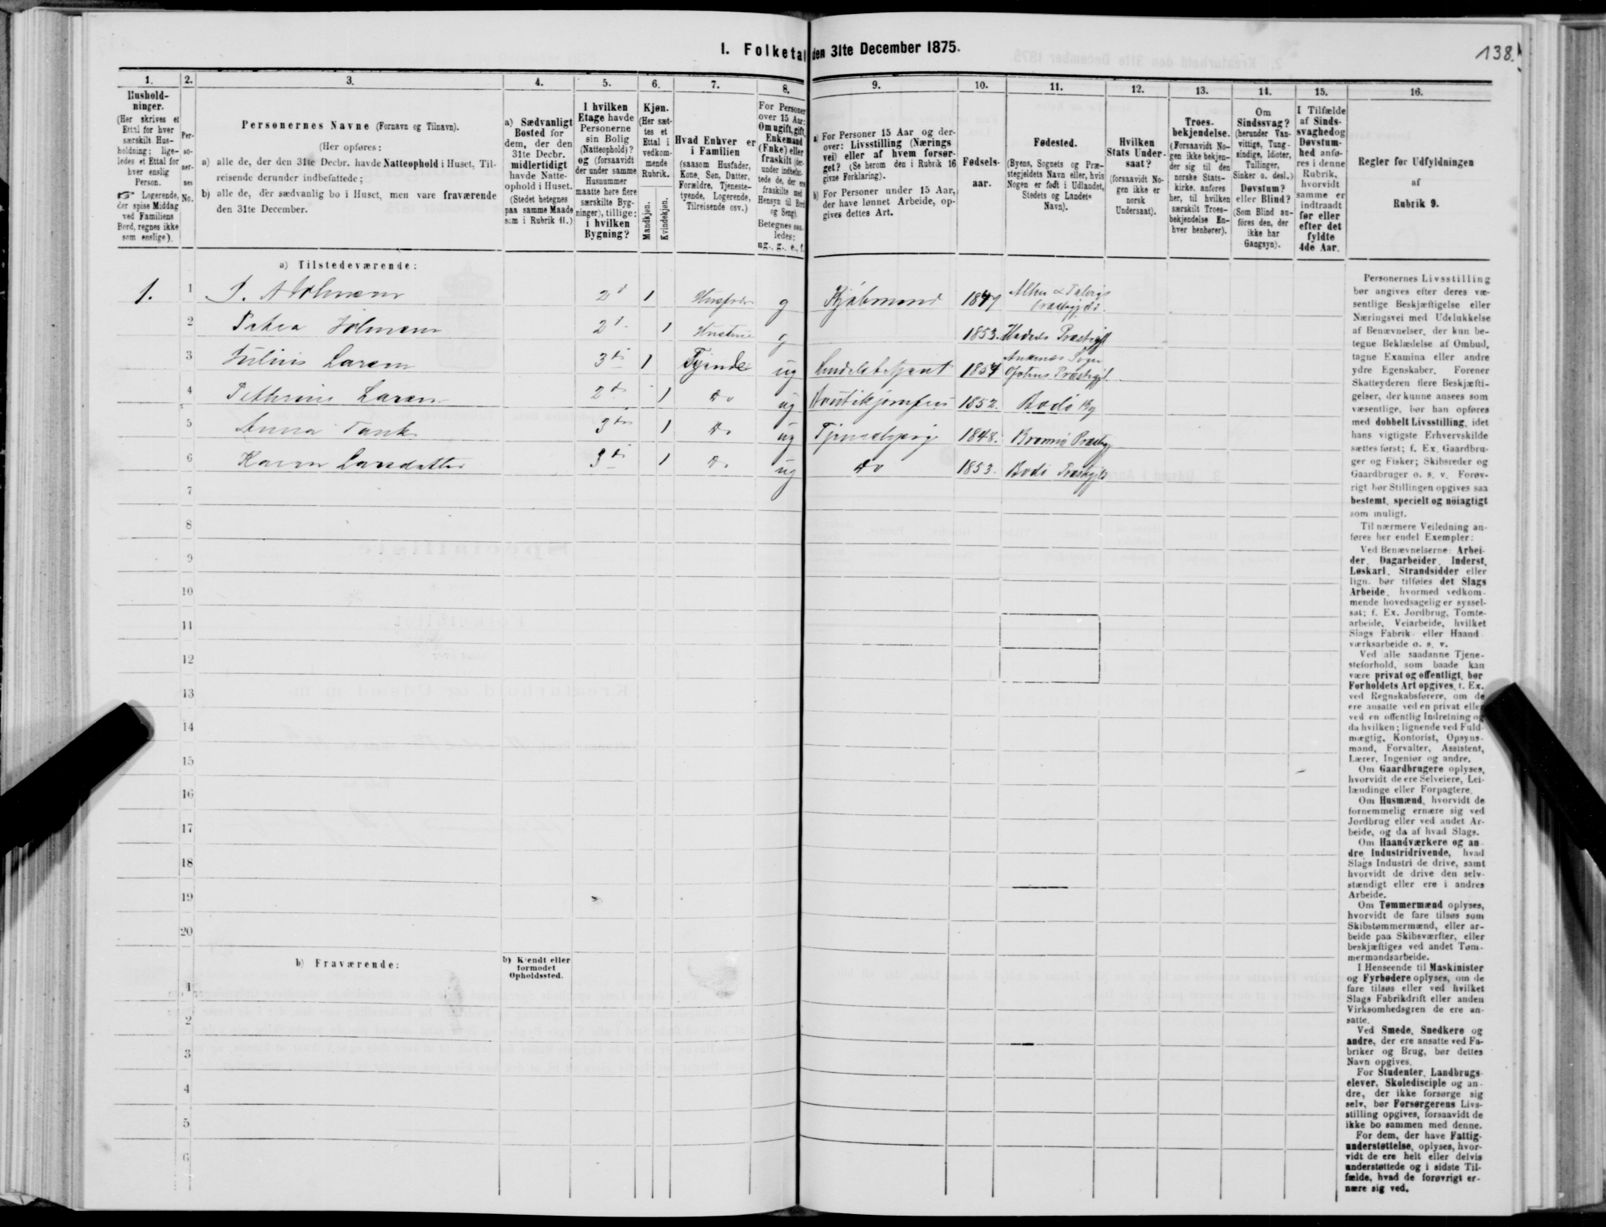 138.
I. Folketal den 31te December 1875.
1. 2. 3. 4. 5. 6. 7. 8. 9. 10. 11. 12. 13. 14. 15. 16.
Hushold-
ninger.
(Her skrives et
Ettal for hver
særskilt Hus-
holdning; lige-
ledes et Ettal for
hver enslig
Person.
☞ Logerende,
der spise Middag
ved Familiens
Bord, regnes ikke
som enslige).
Per-
so-
ner-
nes
No.
Personernes Navne (Fornavn og Tilnavn).
(Her opføres:
a) alle de, der den 31te Decbr. havde Natteophold i Huset, Til-
reisende derunder indbefattede;
b) alle de, der sædvanlig bo i Huset, men vare fraværende
den 31te December.
a) Sædvanligt
Bosted for
dem, der den
31te Decbr.
midlertidigt
havde Natte-
ophold i Huset.
(Stedet betegnes
paa samme Maade
som i Rubrik 11.)
I hvilken
Etage havde
Personerne
sin Bolig
(Natteophold)?
og (forsaavidt
der under samme
Husnummer
maatte høre flere
særskilte Byg-
ninger), tillige:
i hvilken
Bygning?
Kjøn.
(Her sæt-
tes et
Ettal i
vedkom-
mende
Rubrik.
Mandkjøn.
Kvindekjøn.
Hvad Enhver er
i Familien
(saasom Husfader,
Kone, Søn, Datter,
Forældre, Tjeneste-
tyende, Logerende,
Tilreisende osv.)
For Personer
over 15 Aar:
Om ugift, gift,
Enkemand
(Enke) eller
fraskilt
Betegnes saa-
ledes:
ug., g., e., f.
a) For Personer 15 Aar og der-
over: Livsstilling (Nærings
vei) eller af hvem forsør-
get? (Se herom den i Rubrik 16
givne Forklaring).
b) For Personer under 15 Aar,
der have lønnet Arbeide, op-
gives dettes Art.
Fødsels-
aar.
Fødested.
(Byens, Sognets og Præ-
stegjeldets Navn eller, hvis
Nogen er født i Udlandet,
Stedets og Landets
Navn).
Hvilken
Stats Under-
saat?
(forsaavidt No-
gen ikke er
norsk
Undersaat).
Troes-
bekjendelse.
(Forsaavidt No-
gen ikke bekjen-
der sig til den
norske Stats-
kirke, anføres
her, til hvilken
særskilt Troes-
bekjendelse En-
hver henhører).
Om
Sindssvag?
(herunder Van-
vittige, Tung-
sindige, Idioter,
Tullinger,
Sinker o. desl.)
Døvstum?
eller Blind?
(Som Blind an-
føres den, der
ikke har
Gangsyn).
I Tilfælde
af Sinds-
svaghed og
Døvstum-
hed anfø-
res i denne
Rubrik,
hvorvidt
samme er
indtraadt
før eller
efter det
fyldte
4de Aar.
Regler for Udfyldningen
af
Rubrik 9.
a) Tilstedeværende:
1. 1 1 g 1847
2 Petra 1 Hustru g 1853.
3 Julius Larsen 1 Tjende ug 1854
4 Larsen 1 do ug 1852. Bodø By
5 Anna Tank 1 do ug 1848.
6 Karen Larsdatter 1 do ug do 1853. Bodø
7
8
9
10
11
12
13
14
15
16
17
18
19
20
b) Fraværende: b) Kjendt eller
formodet
Opholdssted.
1
2
3
4
5
6
Personernes Livsstilling
bør angives efter deres væ-
sentlige Beskjæftigelse eller
Næringsvei med Udelukkelse
af Benævnelser, der kun be-
tegne Beklædelse af Ombud,
tagne Examina eller andre
ydre Egenskaber. Forener
Skatteyderen flere Beskjæfti-
gelser, der kunne ansees som
væsentlige, bør han opføres
med dobbelt Livsstilling, idet
hans vigtigste Erhvervskilde
sættes først; f. Ex. Gaardbru-
ger og Fisker; Skibsreder og
Gaardbruger o. s. v. Forøv-
rigt bør Stillingen opgives saa
bestemt, specielt og nøiagtigt
som muligt.
Til nærmere Veiledning an-
føres her endel Exempler:
Ved Benævnelserne: Arbei-
der, Dagarbeider, Inderst,
Løskarl, Strandsidder eller
lign. bør tilføies det Slags
Arbeide, hvormed vedkom-
mende hovedsagelig er syssel-
sat; f. Ex. Jordbrug, Tomte-
arbeide, Veiarbeide, hvilket
Slags Fabrik- eller Haand-
værksarbeide o. s. v.
Ved alle saadanne Tjene-
steforhold, som baade kan
være privat og offentligt, bør
Forholdets Art opgives, f. Ex.
ved Regnskabsførere, om de
ere ansatte ved en privat eller
ved en offentlig Indretning og
da hvilken; lignende ved Fuld-
mægtig, Kontorist, Opsyns-
mand, Forvalter, Assistent,
Lærer, Ingeniør og andre.
Om Gaardbrugere oplyses,
hvorvidt de ere Selveiere, Lei-
lændinge eller Forpagtere.
Om Husmænd, hvorvidt de
fornemmelig ernære sig ved
Jordbrug eller ved andet Ar-
beide, og da af hvad Slags.
Om Haandværkere og an-
dre Industridrivende, hvad
Slags Industri de drive, samt
hvorvidt de drive den selv-
stændigt eller ere i andres
Arbeide.
Om Tømmermænd oplyses,
hvorvidt de fare tilsøs som
Skibstømmermænd, eller ar-
beide paa Skibsværfter, eller
beskjæftiges ved andet Tøm-
mermandsarbeide.
I Henseende til Maskinister
og Fyrbødere oplyses, om de
fare tilsøs eller ved hvilket
Slags Fabrikdrift eller anden
Virksomhedsgren de ere an-
satte.
Ved Smede, Snedkere og
andre, der ere ansatte ved Fa-
briker og Brug, bør dettes
Navn opgives.
For Studenter, Landbrugs-
elever, Skoledisciple og an-
dre, der ikke forsørge sig
selv, bør Forsørgerens Livs-
stilling opgives, forsaavidt de
ikke bo sammen med denne.
For dem, der have Fattig-
understøttelse, oplyses, hvor-
vidt de ere helt eller delvis
understøttede og i sidste Til-
fælde, hvad de forøvrigt er-
nære sig ved.